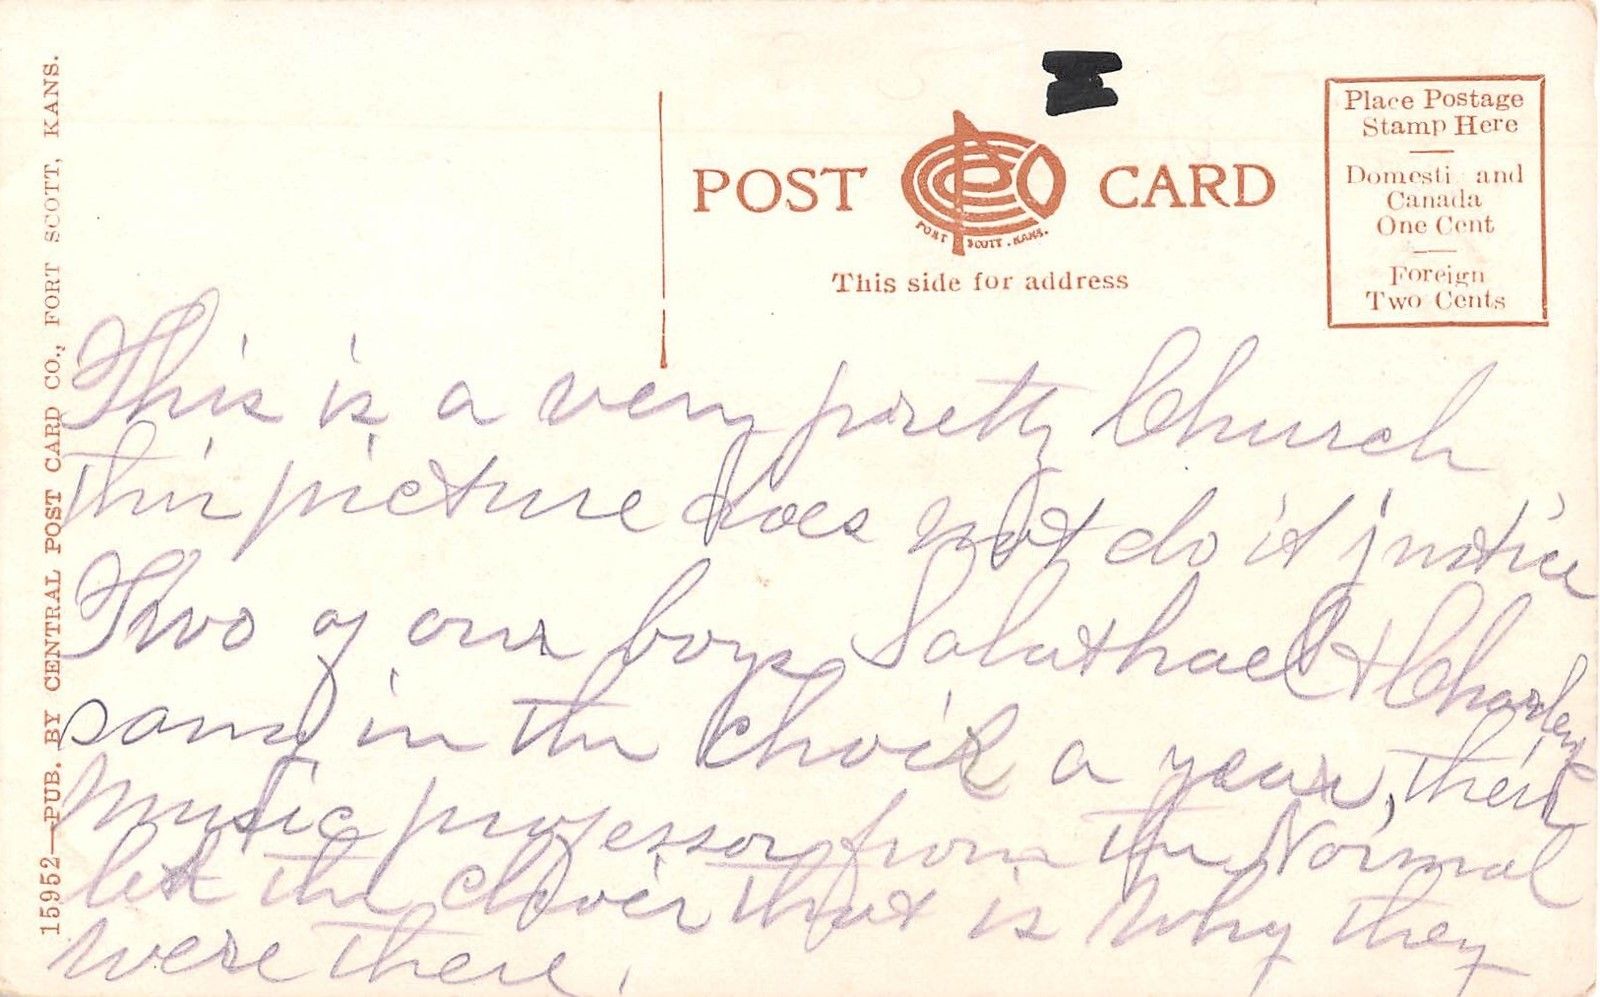 15952—PUB. BY CENTRAL POST CARD CO., FORT SCOTT, KANS.
POST CARD
FORT SCOTT. KANS.
This side for address
Place Postage
Stamp Here
Domesti and
Canada
One Cent
Foreign
Two Cents
This is a very pretty Church
this picture does not do it justice
Two of our boys Salathael & Charley
sang in the Choir a year, their
Music professor from the Normal
led the choir that is why they
were there.